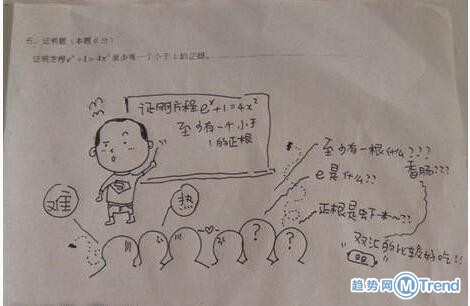 五、证明题(本题6分)
证明方程e^x+1=4x^2至少有一个小于1的正根。
证明方程e^x+1=4x^2
至少有一个小于
1的正根
至少有一根什么???
香肠???
e是什么??
正根是虾米~??
双汇的比较好吃!!
难
热
? ?
趋势网 Trend